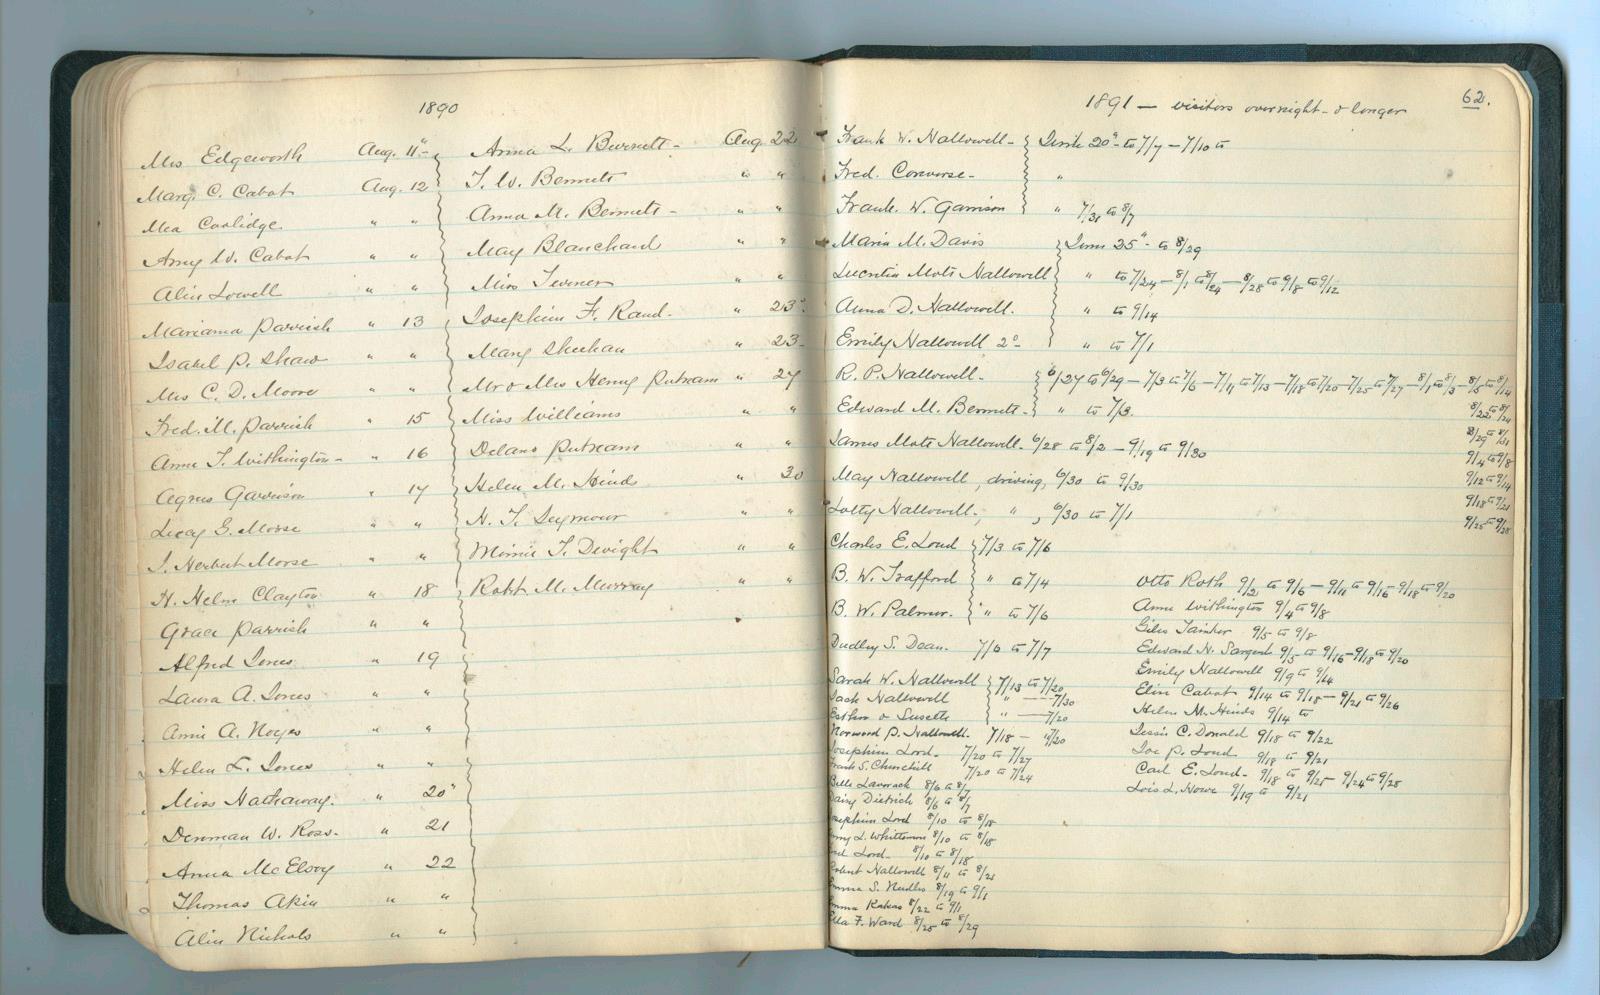 1890
Mrs Edgeworth Aug. 11"
Marg. C. Cabot Aug. 12
Mea Coolidge. " "
Amy W. Cabot " "
Alice Lowell " "
Mariana Parrish " 13
Isabel P. Shaw " "
Mrs C. D. Moore " "
Fred. M. Parrish " 15
Anne T. Withington - " 16
Agnes Garrison " 17
Lucy G. Morse " "
J. Herbert Morse " "
H. Helen Clayton " 18
Grace Parrish " "
Alfred Jones " 19
Laura A. Jones " "
Amie A. Noyes " "
Helen L. Jones " "
Miss Hathaway. " 20"
Denman W. Ross. " 21
Anna McElroy " 22
Thomas Akin " "
Alice Nichols " "
Anna L. Burnett - Aug. 22
T. W. Bennett " "
Anna M. Bennett - " "
May Blanchard " "
Miss Turner " "
Josephine F. Rand. " 23"
Mary Sheehan " 23
Mr & Mrs Henry Putnam " 27
Miss Williams " "
Delano Putnam " "
Helen M. Hinds " 30
H. T. Seymour " "
Minnie T. Dwight " "
Robt M. Murray " "
1891 — visitors overnight - & longer
62.
Frank W. Hallowell - 20" to 7/7 - 7/10 to
Fred. Converse - "
Frank. W. Garrison " 7/31 to 8/7
Maria M. Davis June 25" - to 8/29
Lucretia Mott Hallowell " to 7/24 - 8/1 to 8/24 - 8/28 to 9/8 to 9/12
Anna D. Hallowell. " to 9/14
Emily Hallowell 2d - " to 7/1
R. P. Hallowell - 6/27 to 6/29 - 7/3 to 7/6 - 7/11 to 7/13 - 7/18 to 7/20 - 7/25 to 7/27 - 8/1 to 8/3 - 8/5 to 8/14
8/22 to 8/24
8/29 to 8/31
9/4 to 9/8
9/12 to 9/14
9/18 to 9/21
9/25 to 9/28
Edward M. Bennett - " to 7/3.
James Mott Hallowell. 6/28 to 8/2 - 9/19 to 9/30
May Hallowell, driving, 6/30 to 9/30
Lotty Hallowell., ", 6/30 to 7/1
Charles E. Loud 7/3 to 7/6
B. W. Trafford " to 7/4
B. W. Palmer. " to 7/6
Dudley S. Dean. 7/6 to 7/7
Sarah W. Hallowell 7/13 to 7/20
Jack Hallowell " — 7/30
Esther & Susette " — 7/20
Norwood P. Hallowell. 7/18 - 7/20
Josephine Lord. 7/20 to 7/27
Frank S. Churchill 7/20 to 7/24
Belle Lavorack 8/6 to 8/7
Daisy Dietrich 8/6 to 8/7
Josephine Lord 8/10 to 8/18
L. Whittemore 8/10 to 8/15
Lord. 8/10 to 8/18
Robert Hallowell 8/11 to 8/21
Emma S. Nudles 8/19 to 9/1
Emma Rakas 8/22 to 9/1
F. Ward 8/25 to 8/29
Otto Roth 9/2 to 9/6 - 9/11 to 9/16 - 9/18 to 9/20
Anne Withington 9/4 to 9/8
Giles Taintor 9/5 to 9/8
Edward H. Sargent 9/5 to 9/16 - 9/18 to 9/20
Emily Hallowell 9/9 to 9/14
Elise Cabot 9/14 to 9/18 - 9/21 to 9/26
Helen M. Hinds 9/14 to
Jessie C. Donald 9/18 to 9/22
Joe P. Loud 9/18 to 9/21
Carl E. Loud - 9/18 to 9/21 - 9/24 to 9/28
Lois L. Howe 9/19 to 9/21